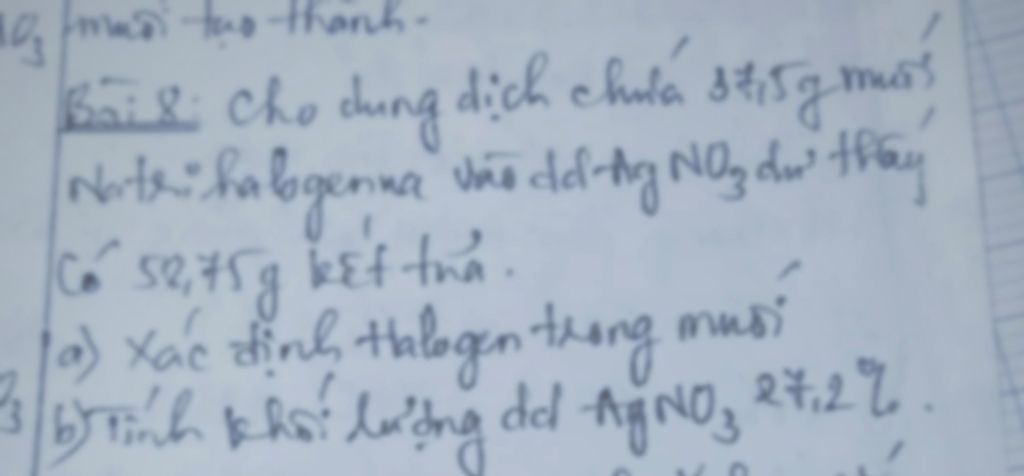 muối tạo thành.
Bài 8: Cho dung dịch chứa 37,5g muối
Natri halogenua vào dd AgNO3 dư thấy
Có 52,75g kết tủa.
a) Xác định Halogen trong muối
b) Tính khối lượng dd AgNO3 27,2%.